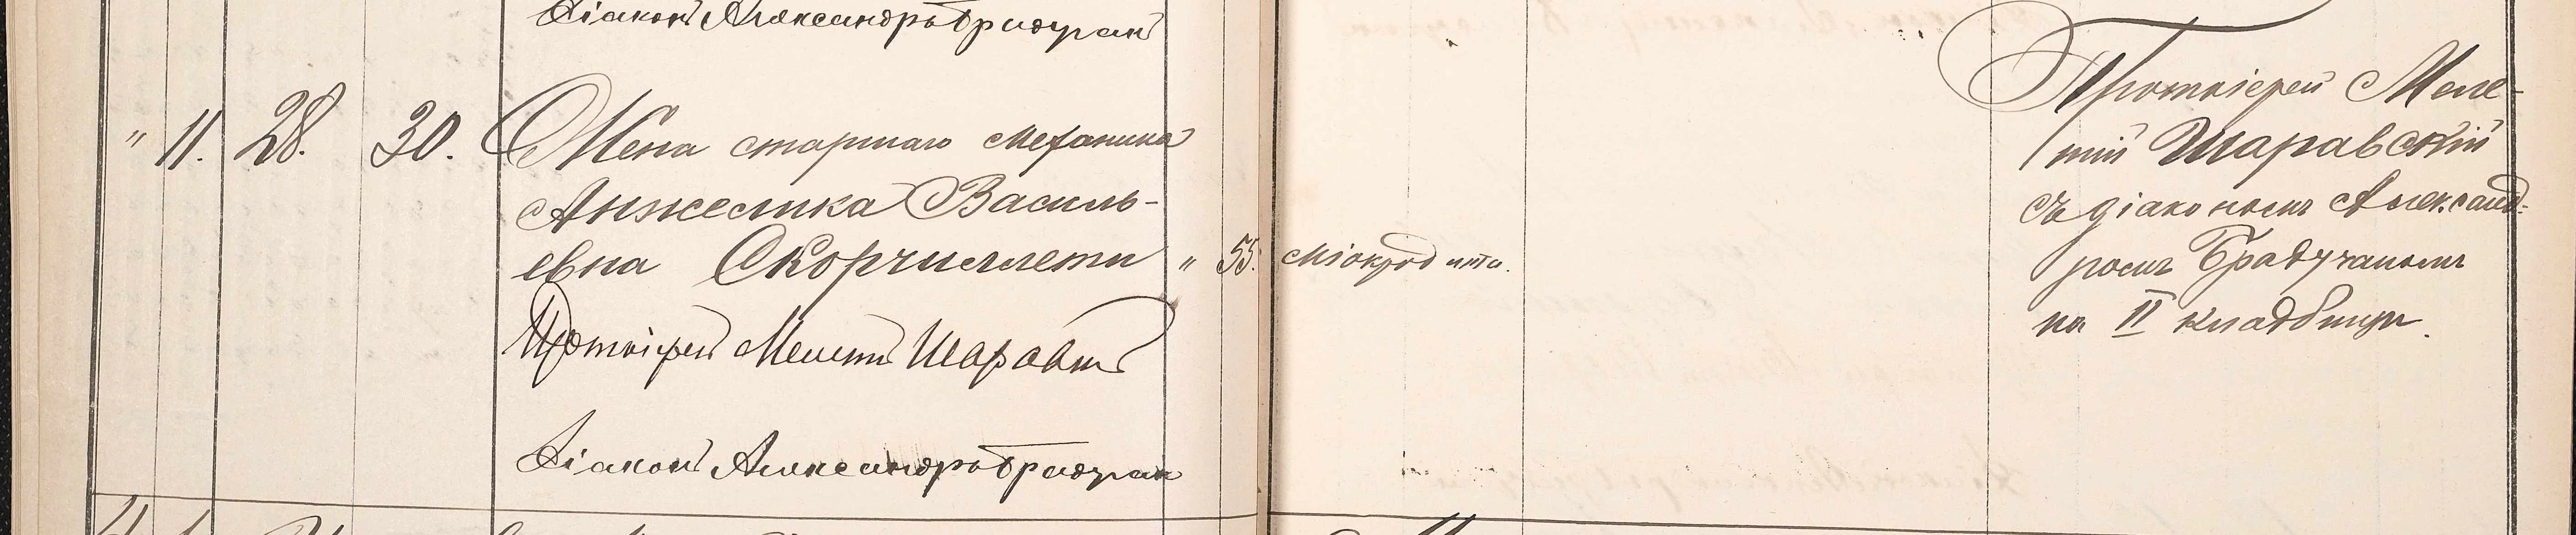 Діаконъ Александръ Брадучан
" 11. 28. 30. Жена старшаго механика
Анжелика Василь-
евна Скорчиллети " 55. Міокродита.
Протоіерей Мелетій Шаравскій
Діаконъ Александръ Брадучан
Протоіерей Меле-
тій Шаравскій
съ діакономъ Александ-
ромъ Брадучаномъ
на II кладбищѣ.